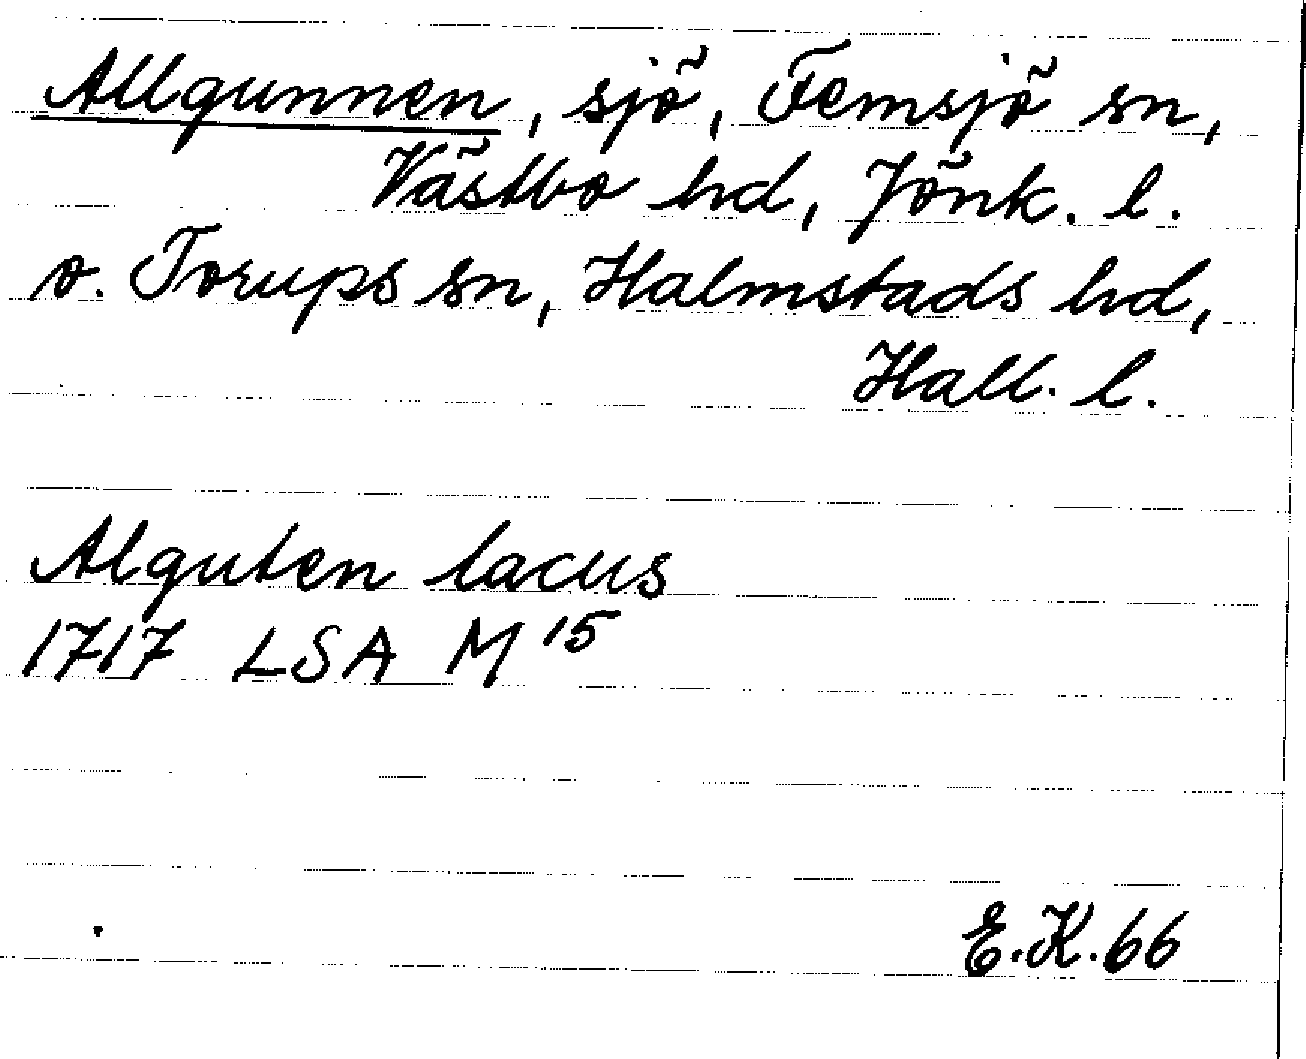 Allgunnen, sjö, Femsjö sn,
Västbo hd, Jönk. l.
o. Torups sn, Halmstads hd,
Hall. l.
Alguten lacus
1717 LSA M 15
E.K.66